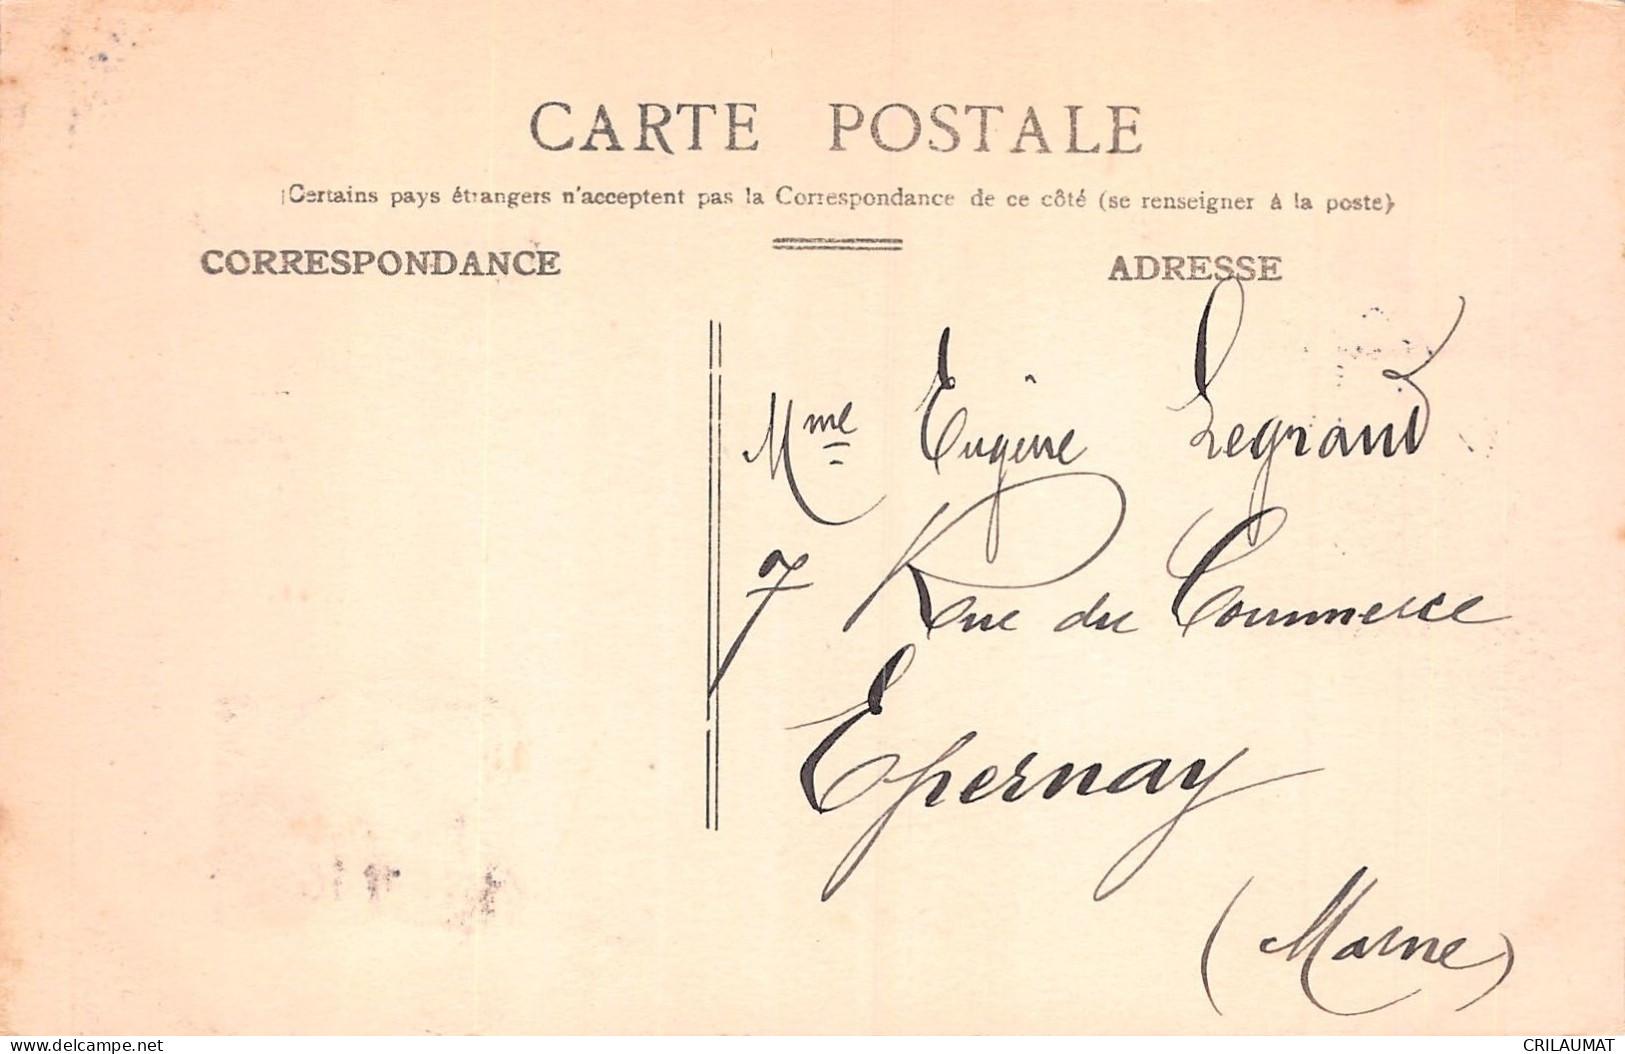 CARTE POSTALE
(Certains pays étrangers n'acceptent pas la Correspondance de ce côté (se renseigner à la poste)
CORRESPONDANCE
ADRESSE
Mme Eugène Legrand
7 Rue du Commerce
Epernay
(Marne)
www.delcampe.net
CRILAUMAT